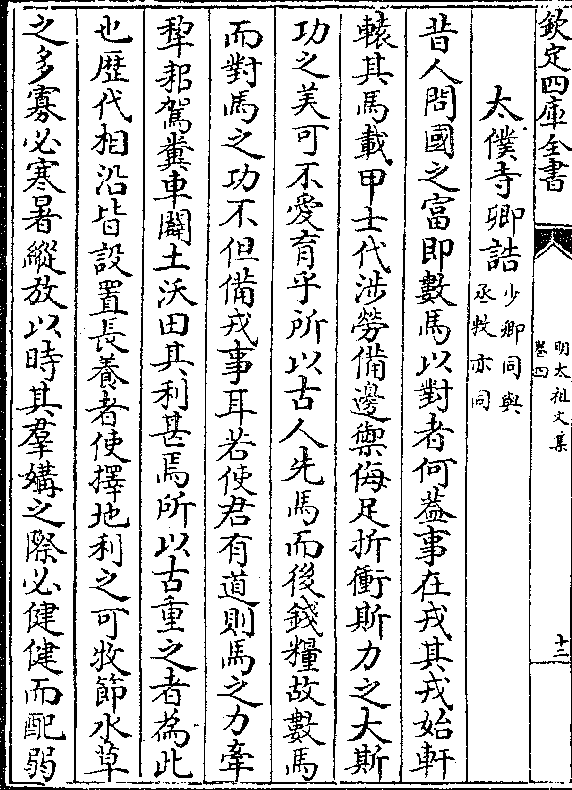 欽定四庫全書
明太祖文集
卷四
十三
太僕寺卿誥少卿同與
丞牧亦同
昔人問國之富即數馬以對者何蓋事在戎其戎始軒
轅其馬載甲士代涉勞備邊禦侮足折衝斯力之大斯
功之美可不愛育乎所以古人先馬而後錢糧故數馬
而對馬之功不但備戎事耳若使君有道則馬之力牽
犂耜駕糞車闢土沃田其利甚焉所以古重之者為此
也歴代相沿皆設置長養者使擇地利之可牧節水草
之多寡必寒暑縱放以時其羣媾之際必健健而配弱